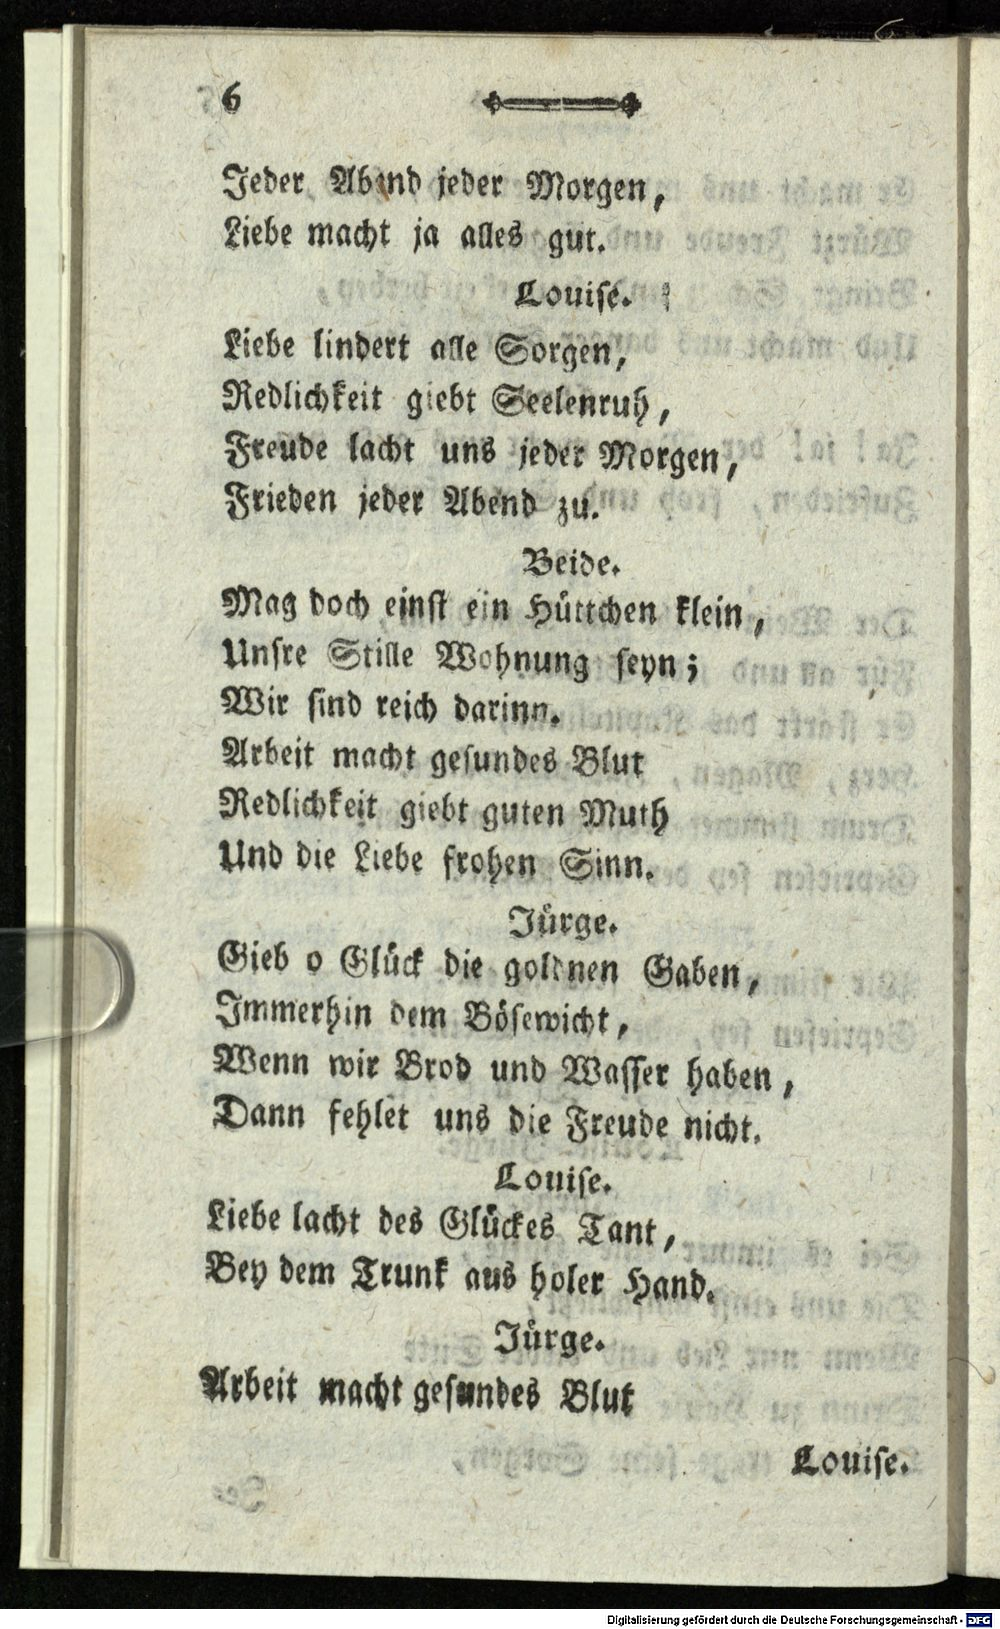 6
Jeder Abend jeder Morgen,
Liebe macht ja alles gut.
Louise.
Liebe lindert alle Sorgen,
Redlichkeit giebt Seelenruh,
Freude lacht uns jeder Morgen,
Frieden jeder Abend zu.
Beide.
Mag doch einst ein Hüttchen klein,
Unsre Stille Wohnung seyn;
Wir sind reich darinn.
Arbeit macht gesundes Blut
Redlichkeit giebt guten Muth
Und die Liebe frohen Sinn.
Jürge.
Gieb o Glück die goldnen Gaben,
Immerhin dem Bösewicht,
Wenn wir Brod und Wasser haben,
Dann fehlet uns die Freude nicht.
Louise.
Liebe lacht des Glückes Tant,
Bey dem Trunk aus holer Hand.
Jürge.
Arbeit macht gesundes Blut
Louise.
Digitalisierung gefördert durch die Deutsche Forschungsgemeinschaft - DFG